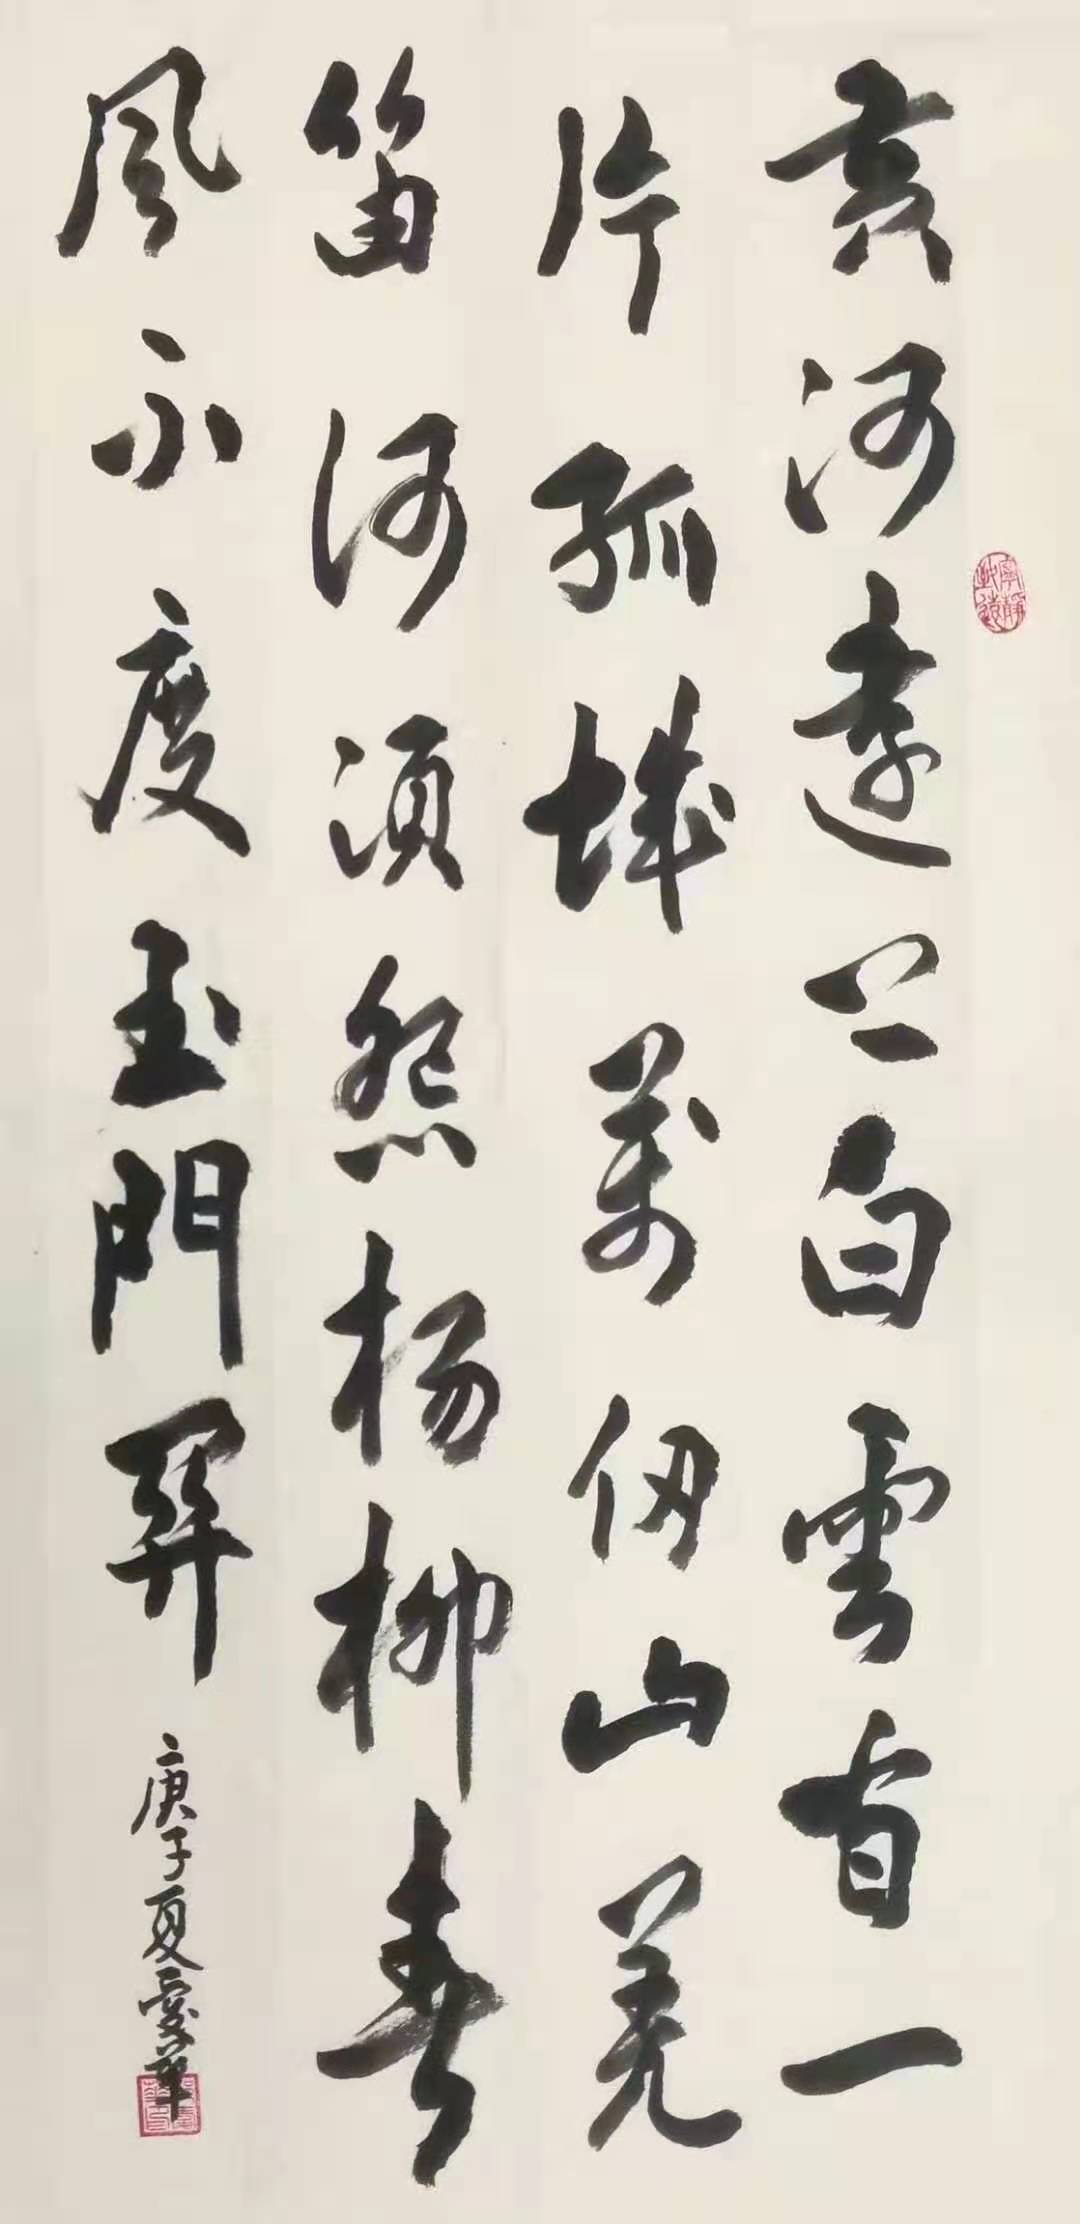 黄河遠上白雲間一
片孤城萬仞山羌
笛何須怨楊柳春
風不度玉門關
庚子夏愛華
寧靜致遠